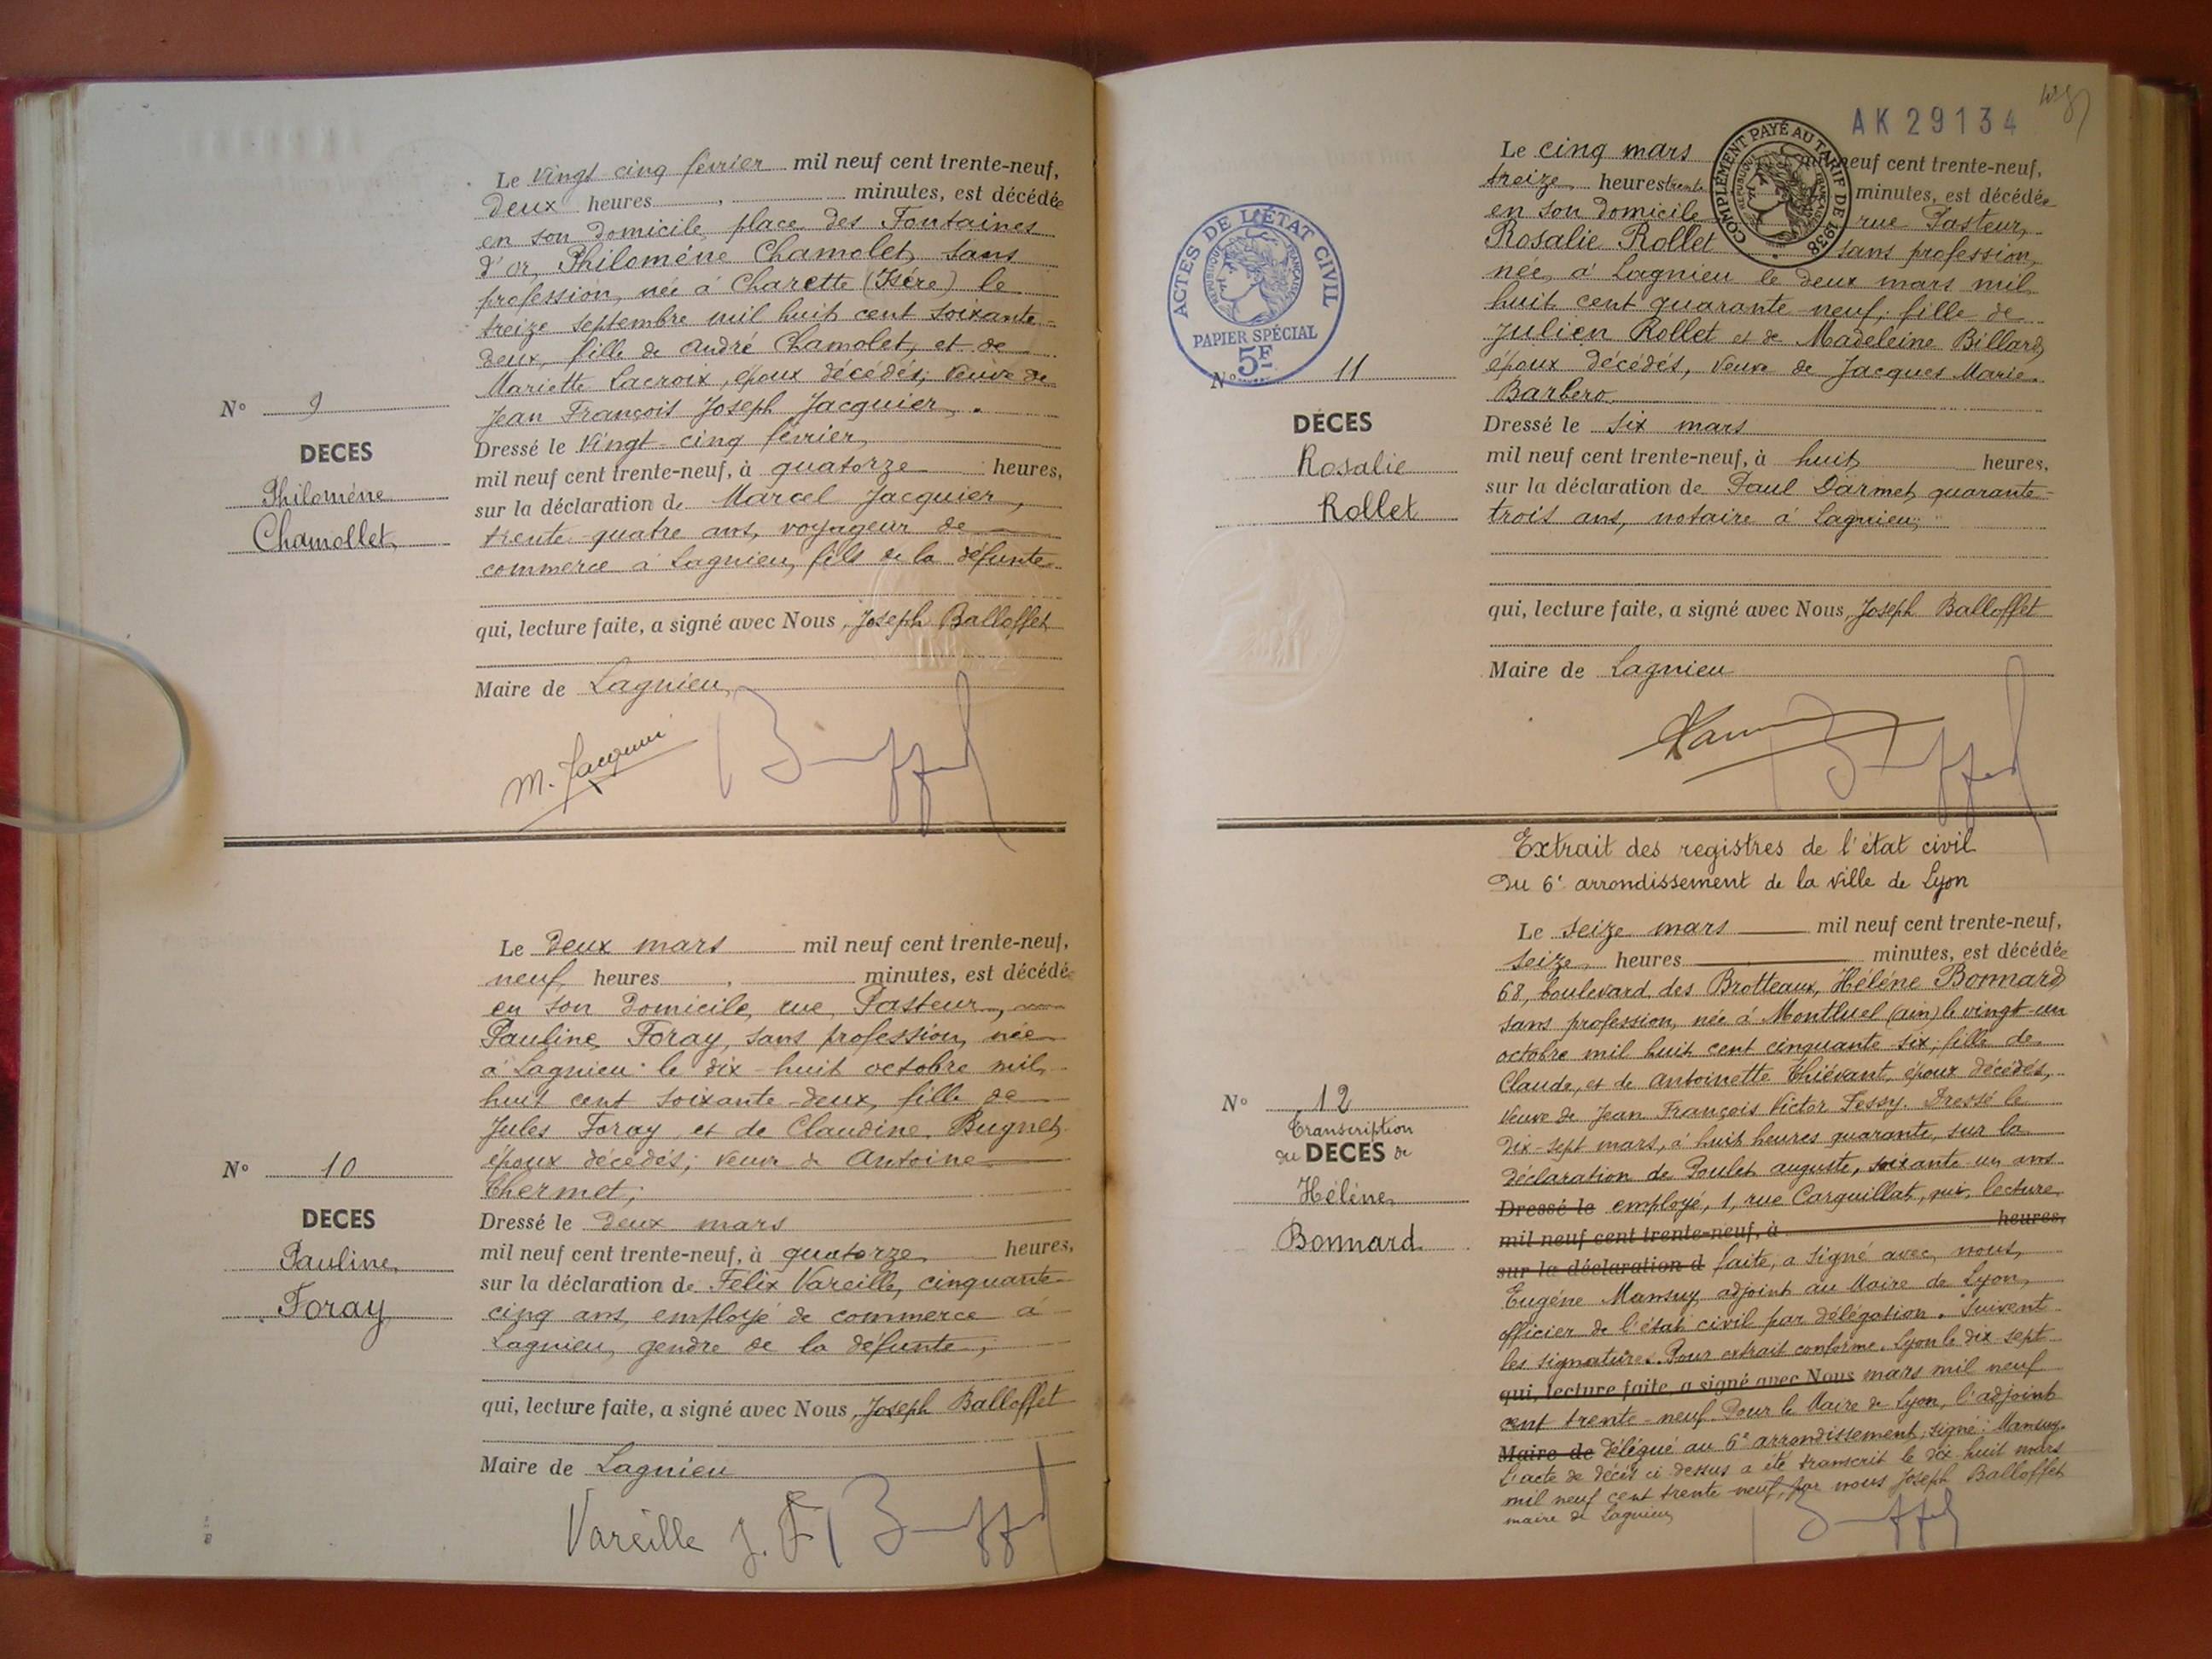 Le vingt cinq février mil neuf cent trente-neuf,
deux heures , minutes, est décédée
en son domicile, place des Fontaines
d'or, Philomène Chamolet, sans
profession, née à Charette (Isère) le
treize septembre mil huit cent soixante-
deux, fille de André Chamolet, et de
Mariette Lacroix, époux décédés; veuve de
Jean François Joseph Jacquier.
N° 9
DECES
Philomène
Chamollet
Dressé le vingt-cinq février
mil neuf cent trente-neuf, à quatorze heures,
sur la déclaration de Marcel Jacquier,
trente-quatre ans, voyageur de
commerce à Lagnieu, fils de la défunte
qui, lecture faite, a signé avec Nous, Joseph Balloffet
Maire de Lagnieu
M. Jacquier
Le deux mars mil neuf cent trente-neuf,
neuf heures , minutes, est décédée
en son domicile, rue Pasteur,
Pauline Foray, sans profession, née
à Lagnieu le dix-huit octobre mil
huit cent soixante-deux, fille de
Jules Foray et de Claudine Bugnet
époux décédés; veuve de Antoine
Thermet;
N° 10
DECES
Pauline
Foray
Dressé le deux mars
mil neuf cent trente-neuf, à quatorze heures,
sur la déclaration de Félix Vareille, cinquante-
cinq ans, employé de commerce à
Lagnieu, gendre de la défunte,
qui, lecture faite, a signé avec Nous, Joseph Balloffet
Maire de Lagnieu
Vareille J. F
AK 29134
COMPLÉMENT PAYÉ AU TARIF DE 1938
REPUBLIQUE FRANÇAISE
ACTES DE L'ÉTAT CIVIL
REPUBLIQUE FRANÇAISE
PAPIER SPÉCIAL
5F
Le cinq mars mil neuf cent trente-neuf,
treize heures trente minutes, est décédée
en son domicile rue Pasteur,
Rosalie Rollet sans profession,
née à Lagnieu le deux mars mil
huit cent quarante-neuf, fille de
Julien Rollet et de Madeleine Billard,
époux décédés, veuve de Jacques Marie
Barbero.
N° 11
DÉCES
Rosalie
Rollet
Dressé le six mars
mil neuf cent trente-neuf, à huit heures,
sur la déclaration de Paul Darmet, quarante-
trois ans, notaire à Lagnieu;
qui, lecture faite, a signé avec Nous, Joseph Balloffet
Maire de Lagnieu
Extrait des registres de l'état civil
du 6e arrondissement de la ville de Lyon
Le seize mars mil neuf cent trente-neuf,
seize heures minutes, est décédée
68, boulevard des Brotteaux, Hélène Bonnard
sans profession, née à Montluel (ain) le vingt-un
octobre mil huit cent cinquante-six, fille de
Claude, et de Antoinette Thiévant, époux décédés,
veuve de Jean François Victor Tessy. Dressé le
dix-sept mars, à huit heures quarante, sur la
déclaration de Poulet auguste, soixante un ans
N° 12
Transcription
du DECES de
Hélène
Bonnard
Dressé le employé, 1, rue Carquillat, qui, lecture
mil neuf cent trente-neuf, à heures,
sur la déclaration d faite, a signé avec nous,
Eugène Mansuy, adjoint au Maire de Lyon,
officier de l'état civil par délégation. Suivent
les signatures. Pour extrait conforme. Lyon le dix sept
qui, lecture faite, a signé avec Nous mars mil neuf
cent trente-neuf. Pour le Maire de Lyon, l'adjoint
Maire de délégué au 6e arrondissement, signé: Mansuy.
L'acte de décès ci dessus a été transcrit le dix huit mars
mil neuf cent trente neuf, par nous Joseph Balloffet
maire de Lagnieu